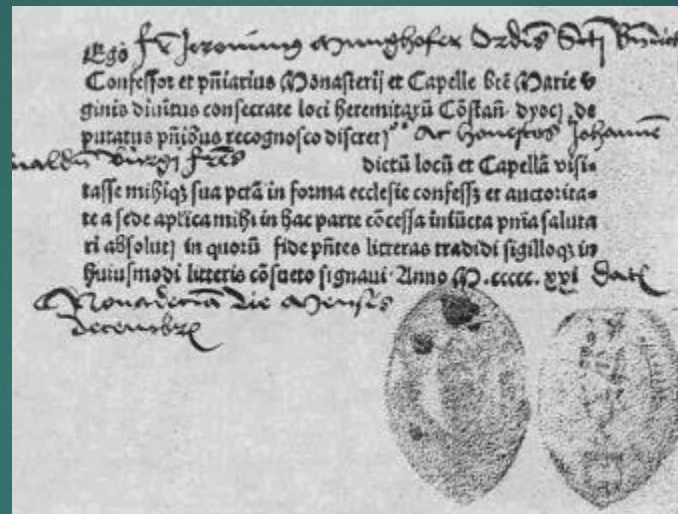 Ego fr̄ Jeronimus Munghofer Ordīs Scti
Confessor et pn̄iarius Monasterij et Capelle btē Marie v
ginis diuitus consecrate loci heremitaꝝū Cōstan̄. dyocꝭ. de
putatus pn̄ibus recognosco discretꝭ Ac honestos Johannē
burgi frēs dictū locū et Capellā visi-
tasse mihiqꝫ sua pctā in forma ecclesie confessꝭ et auctorita-
te a sede aplica mihi in hac parte cōcessa iniūcta pn̄ia saluta
ri absolutꝭ in quorū fide pn̄tes litteras tradidi sigilloqꝫ in
huiusmodi litteris cōsueto signaui. Anno M.ccccc.xxi Datꝭ
Nonadecīa die Mensis
decembrꝭ